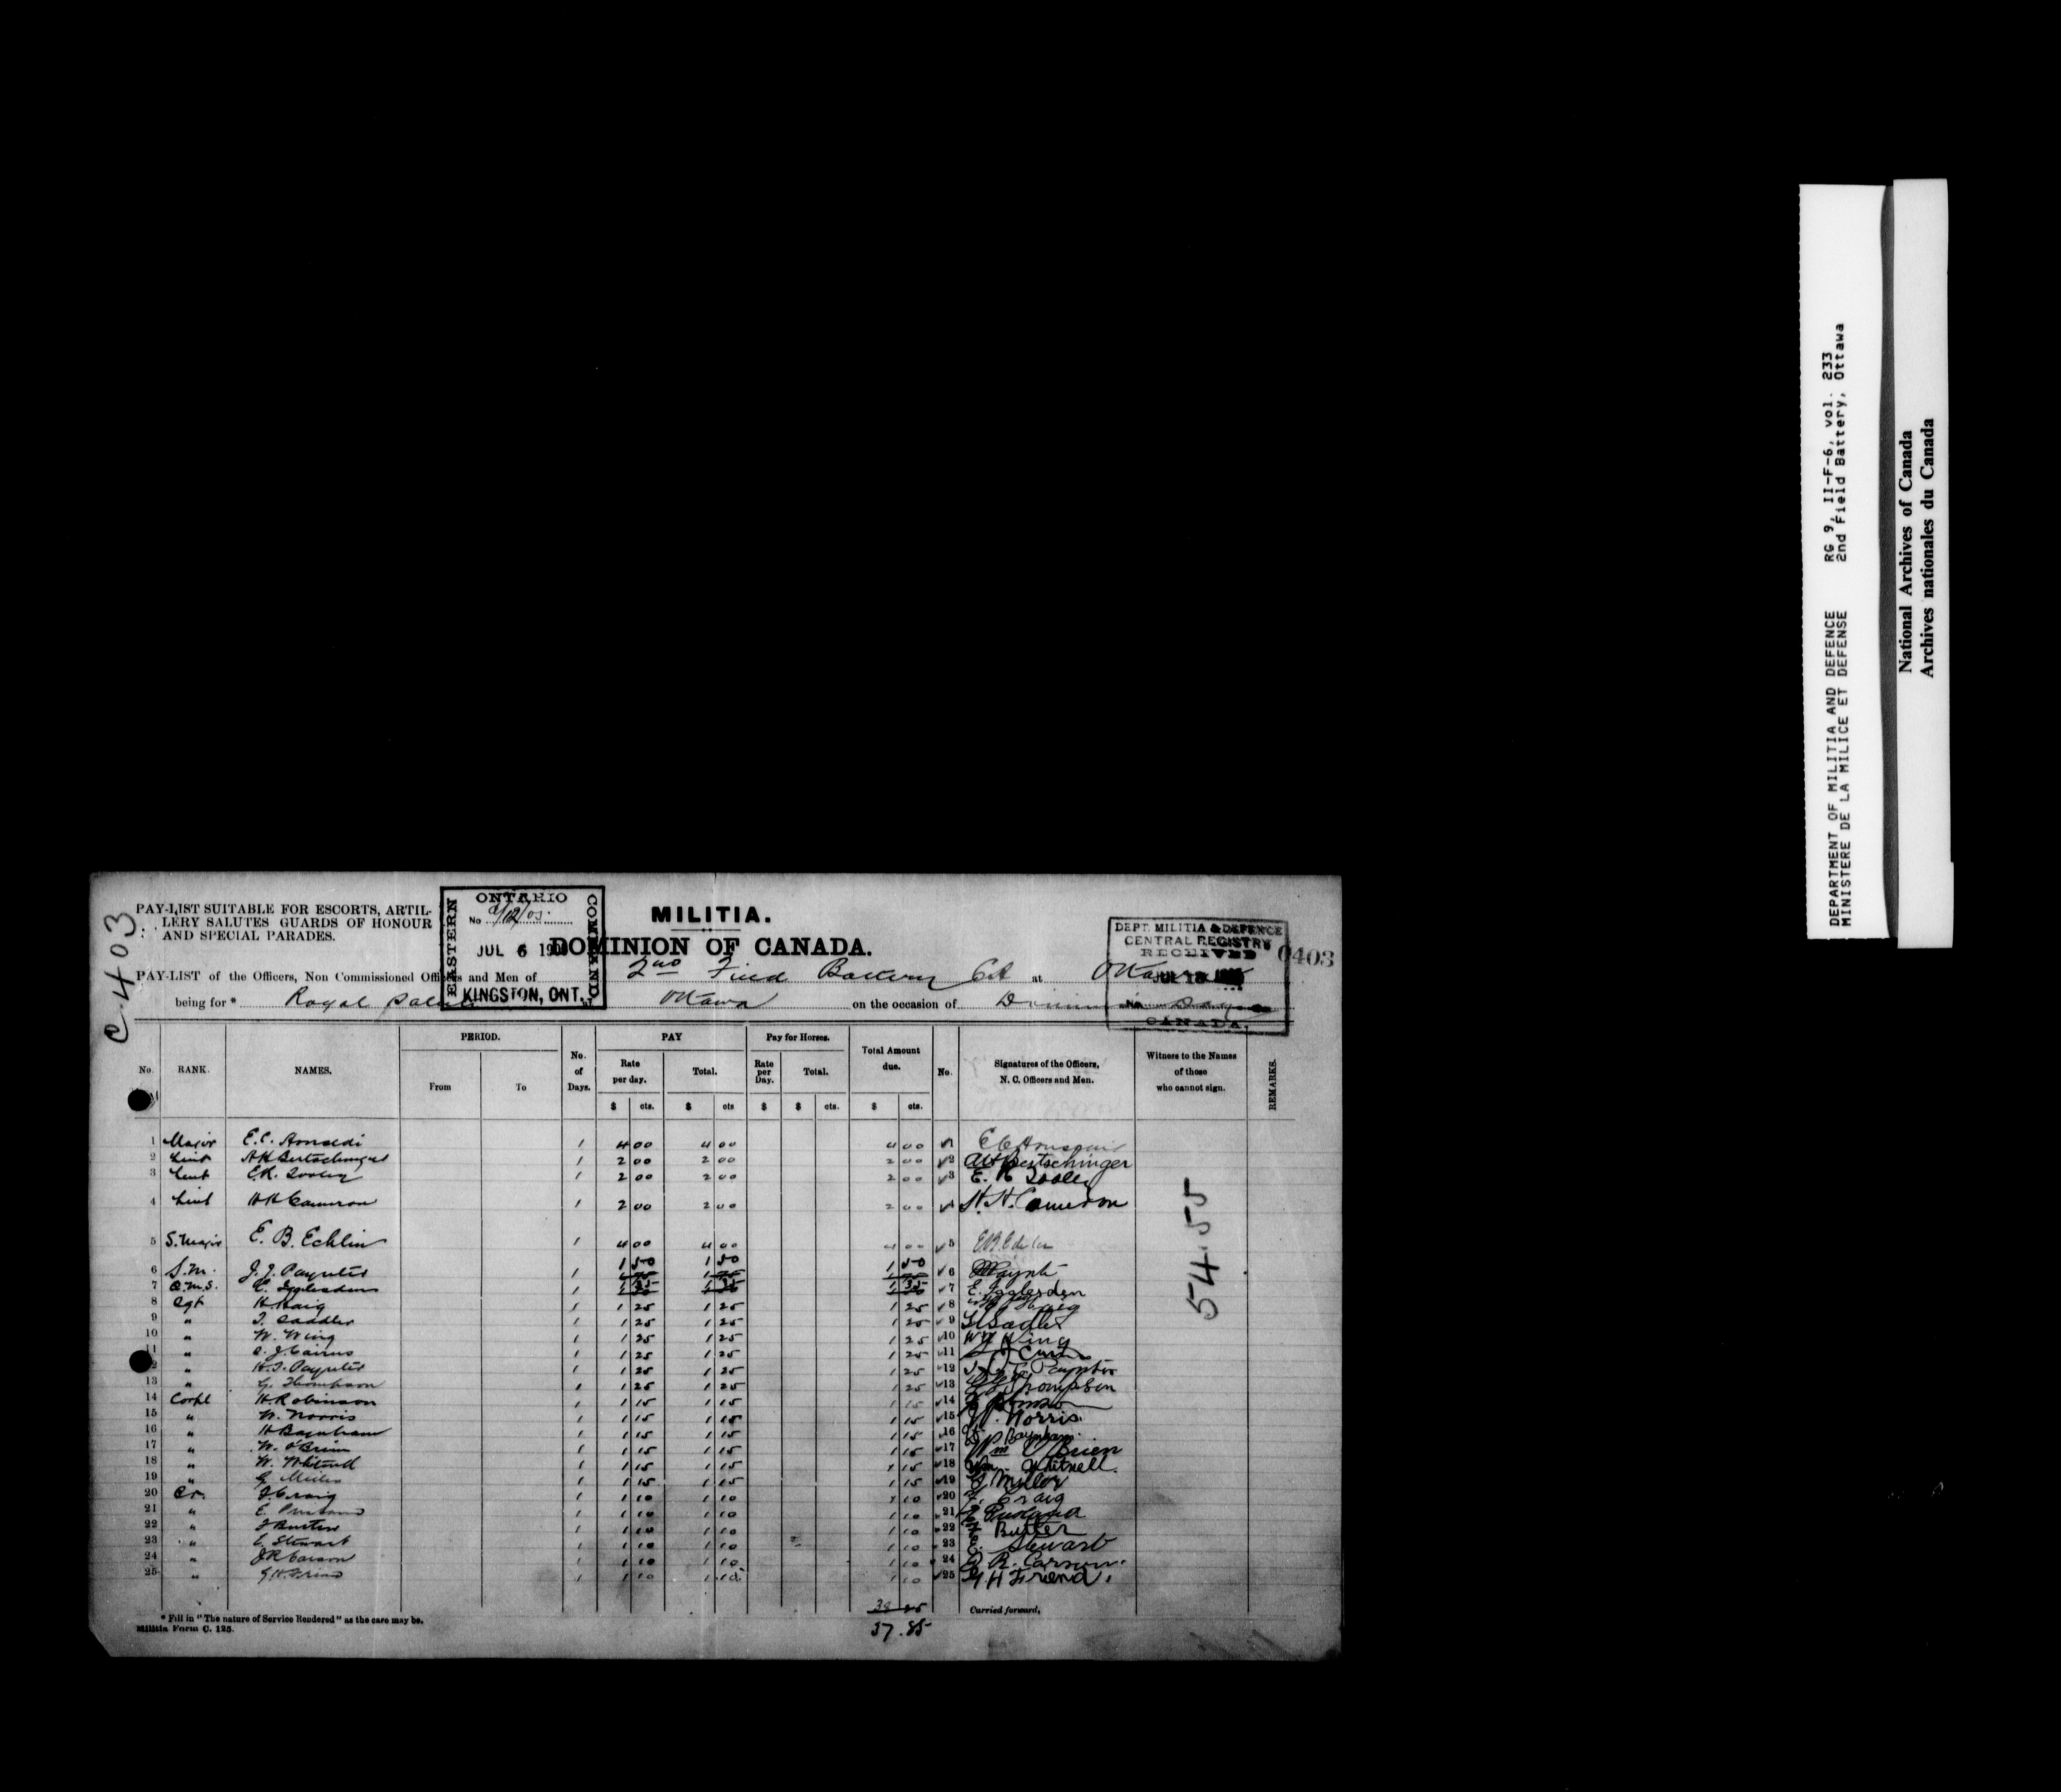 PAY-LIST SUITABLE FOR ESCORTS, ARTIL-
LERY SALUTES GUARDS OF HONOUR
AND SPECIAL PARADES.
C-403
EASTERN ONTARIO COMMAND
No
JUL 6 19
KINGSTON, ONT.
MILITIA.
DOMINION OF CANADA.
DEPT. MILITIA & DEFENCE
CENTRAL REGISTRY
RECEIVED
JUL 13
No.
CANADA.
0403
PAY-LIST of the Officers, Non Commissioned Officers and Men of 2nd Field Battery CA at Ottawa
being for * Royal Salute at Ottawa on the occasion of Dominion Day
No. RANK. NAMES. PERIOD. From To No. of Days. PAY Rate per day. Total. Pay for Horses. Rate per Day. Total. Total Amount due. No. Signatures of the Officers, N. C. Officers and Men. Witness to the Names of those who cannot sign. REMARKS.
$ cts. $ cts $ $ cts. $ cts.
1 Major E.C. 1 4 00 4 00 4 00 1
2 Lieut AH Bertschinger 1 2 00 2 00 2 00 2 AH Bertschinger
3 Lieut E.R. Tooley 1 2 00 2 00 2 00 3 E. R Tooley
4 Lieut H H Cameron 1 2 00 2 00 2 00 4 H. H. Cameron
5 S. Major E. B. Echlin 1 4 00 4 00 4 00 5 E.B. Echlin
6 S.M. J. J. Paynter 1 1 50 1 50 1 50 6 Paynter
7 Q.M.S. E. Igglesden 1 1 35 1 35 1 35 7 E. Igglesden
8 Sgt H. Haig 1 1 25 1 25 1 25 8 Haig
9 " T. Saddler 1 1 25 1 25 1 25 9 Sadler
10 " W. Wing 1 1 25 1 25 1 25 10 W Wing
11 " J. Cairns 1 1 25 1 25 1 25 11
12 " H. T. Paynter 1 1 25 1 25 1 25 12 Paynter
13 " G. Thompson 1 1 25 1 25 1 25 13 Thompson
14 Corpl H Robinson 1 1 15 1 15 1 15 14
15 " W. Norris 1 1 15 1 15 1 15 15 W. Norris
16 " H Baynham 1 1 15 1 15 1 15 16 Baynham
17 " W. O'Brien 1 1 15 1 15 1 15 17 Wm O'Brien
18 " W. Whitnell 1 1 15 1 15 1 15 18 Wm. Whitnell.
19 " G. Miller 1 1 15 1 15 1 15 19 G. Miller
20 Gr. F. Craig 1 1 10 1 10 1 10 20 F. Craig
21 " E. 1 1 10 1 10 1 10 21 E
22 " 1 1 10 1 10 1 10 22 Butler
23 " E. Stewart 1 1 10 1 10 1 10 23 E. Stewart
24 " J R Carson 1 1 10 1 10 1 10 24 J. R. Carson.
25 " G H Friend 1 1 10 1 10 1 10 25 G H Friend.
54.55
38 25 Carried forward,
37.85
* Fill in "The nature of Service Rendered" as the case may be.
Militia Form C. 125.
DEPARTMENT OF MILITIA AND DEFENCE RG 9, II-F-6, vol. 233
MINISTERE DE LA MILICE ET DEFENSE 2nd Field Battery, Ottawa
National Archives of Canada
Archives nationales du Canada